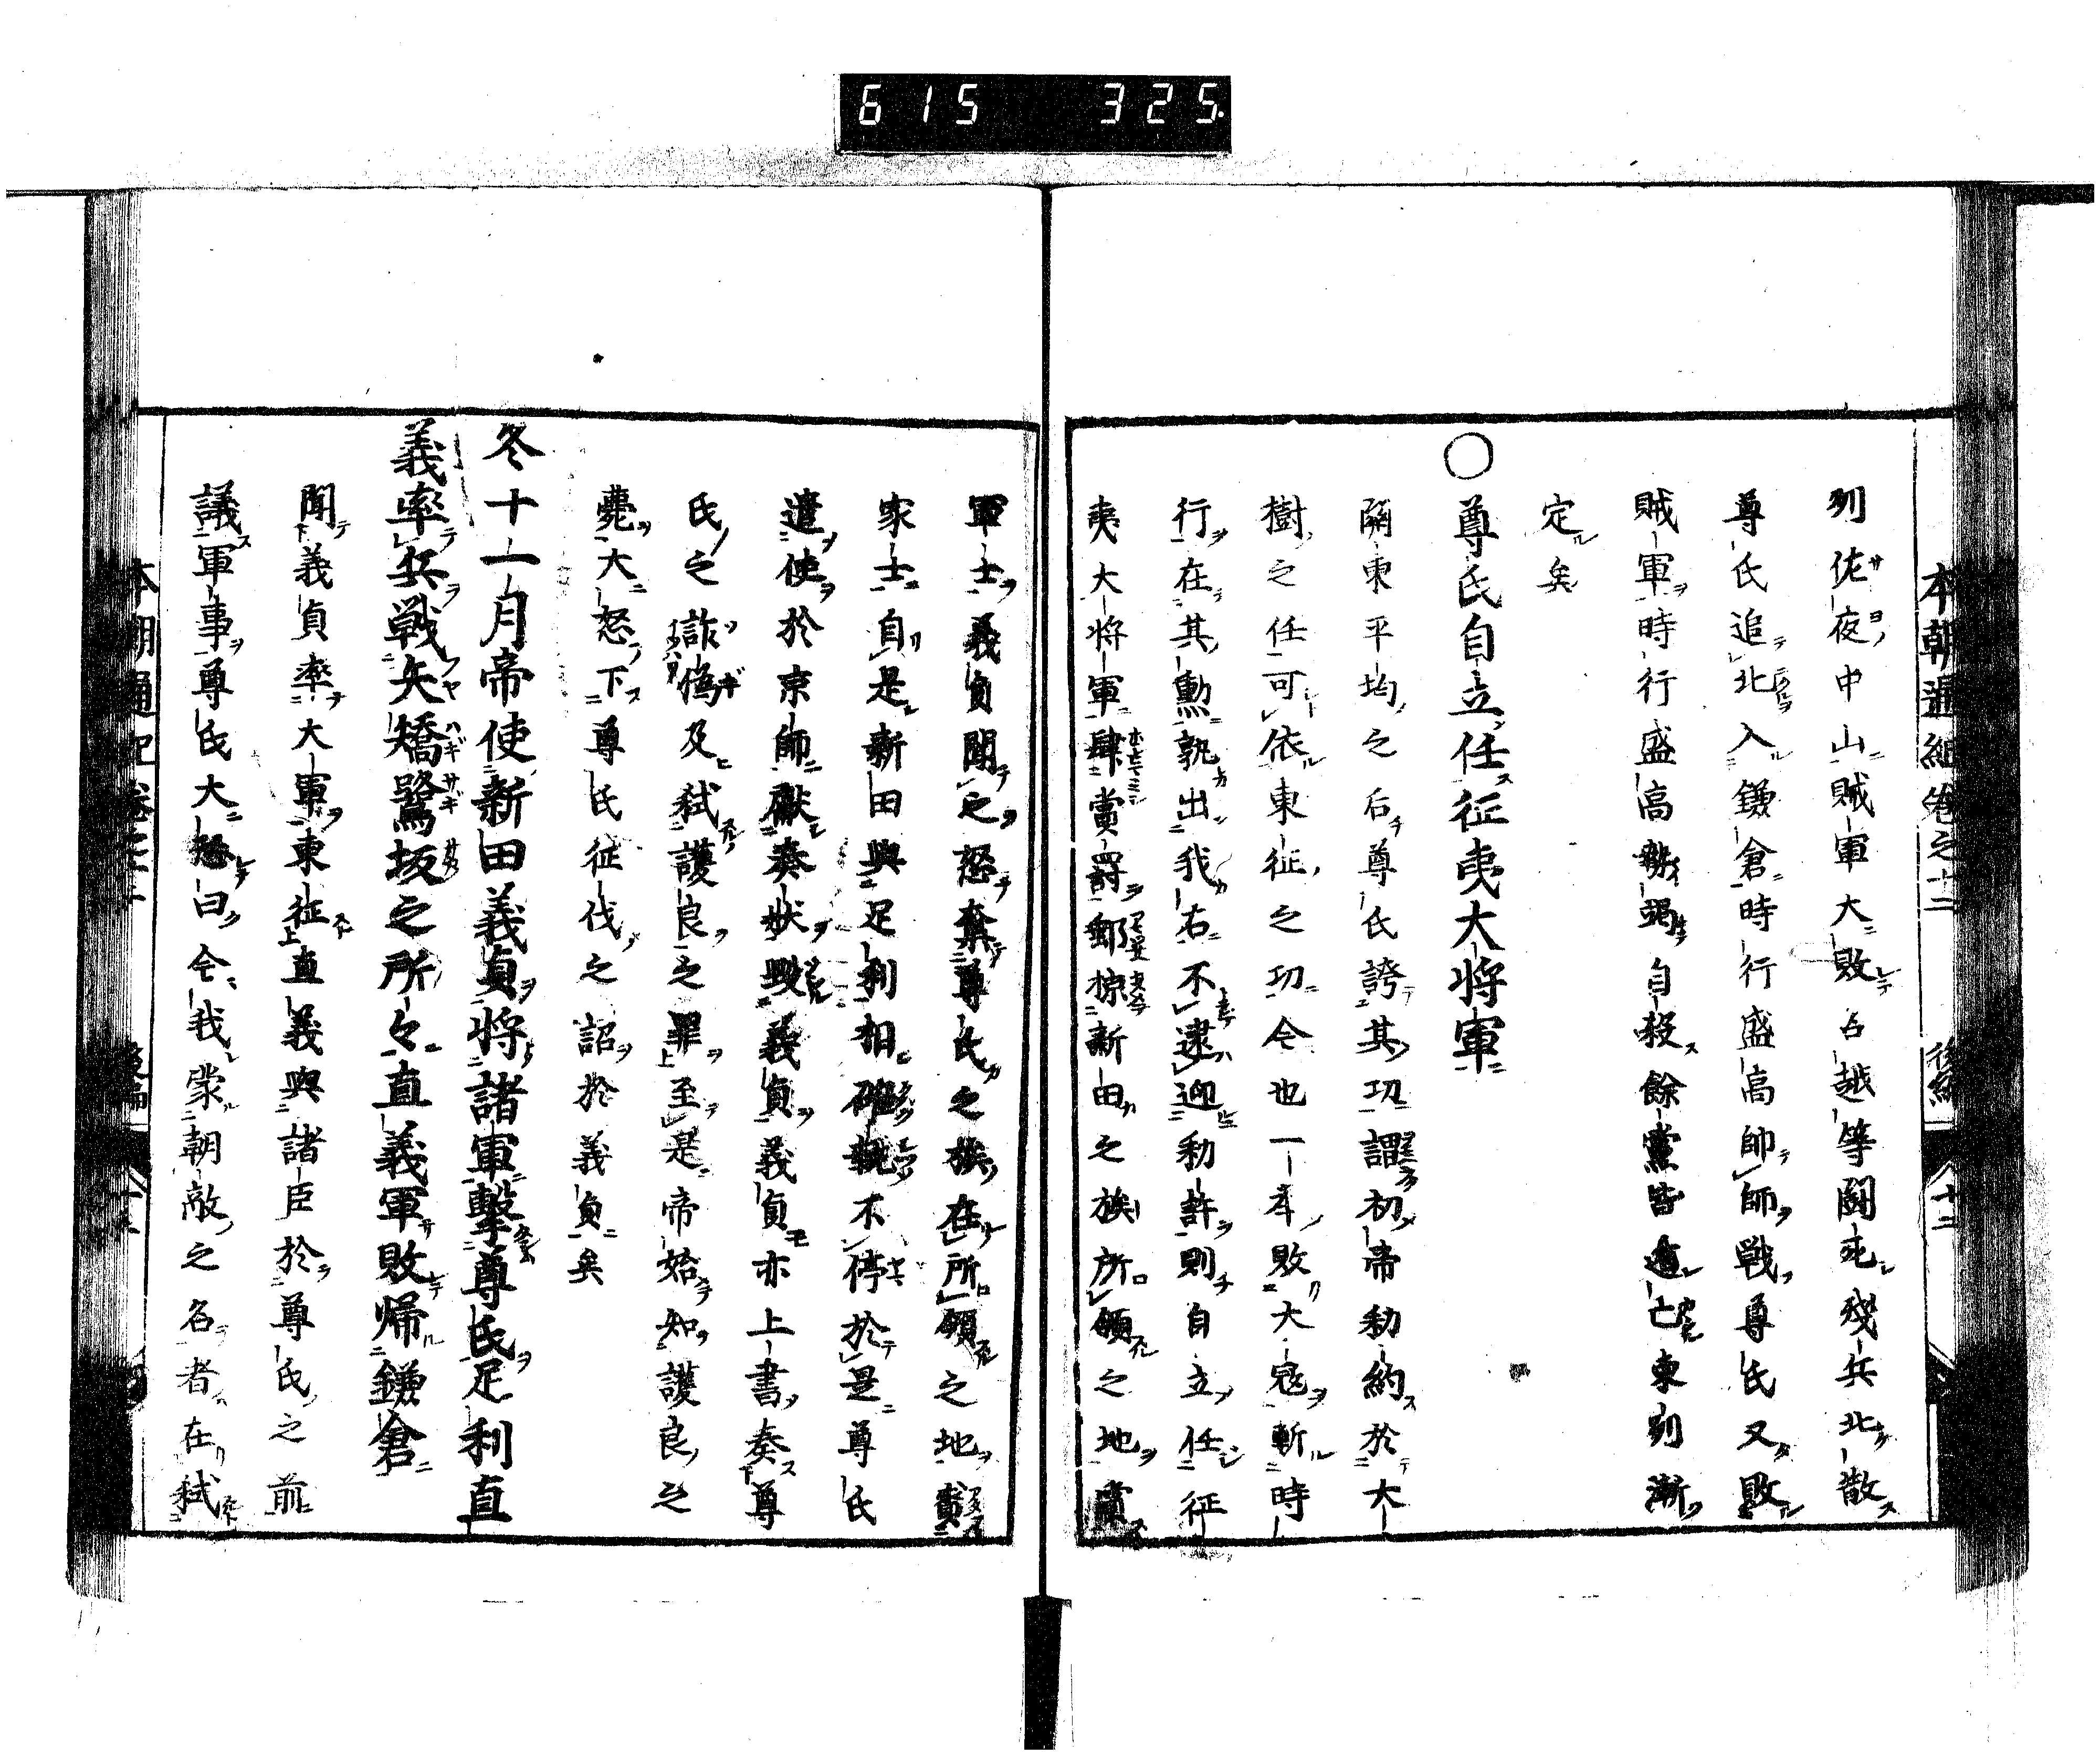 615 325.
本朝通紀卷之十二 後編 十二
列佐夜中山賊軍大敗名越等鬪死殘兵北散
尊氏追北入鎌倉時行盛高帥師戰尊氏又敗
賊軍時行盛高勢竭自殺餘黨皆遁亡東列漸
定矣
○尊氏自立任征夷大將軍
關東平均之后尊氏誇其功謂初帝勅約於大
樹之任可依東征之功今也一年敗大寇斬時
行在其勲孰出我右不逮迎勅許則自立任征
夷大將軍肆賞罸鄉掠新田之族所領之地賞
軍士義貞聞之怒奪尊氏之族在所領之地賞
家士自是新田與足利相確執不停於是尊氏
遣使於京師獻奏狀毀義貞義貞亦上書奏尊
氏之詐偽及弑護良之罪至是帝始知護良之
薨大怒下尊氏征伐之詔於義貞矣
冬十一月帝使新田義貞將諸軍擊尊氏足利直
義率兵戰矢矯鷺坂之所々直義軍敗帰鎌倉
聞義貞率大軍東征直義與諸臣於尊氏之前
議軍事尊氏大怒曰令我蒙朝敵之名者在弑